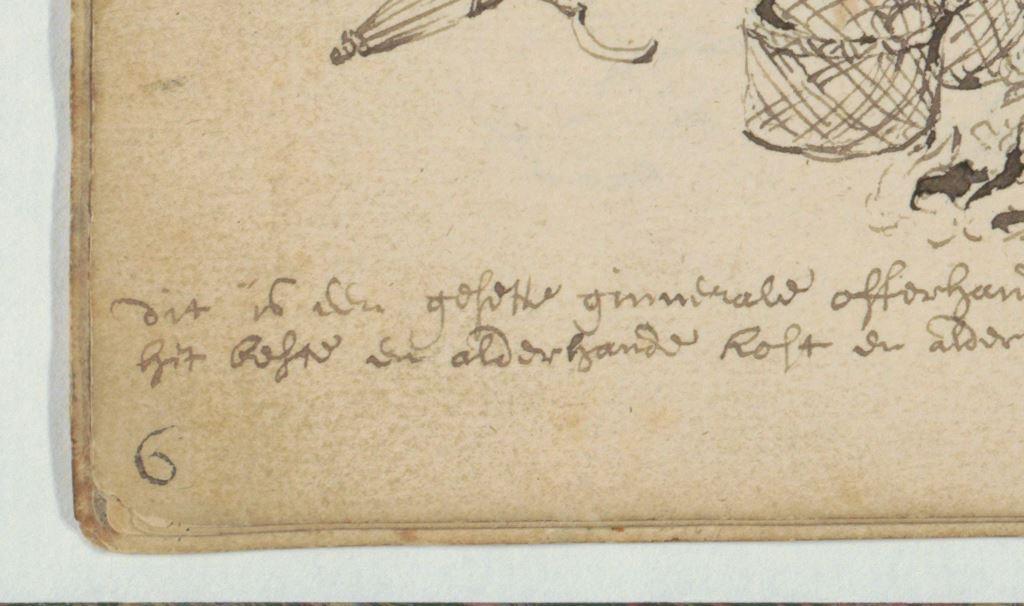 dit is een gesette ginnerale offerhan
hit beste en alderhande kost en alder
6